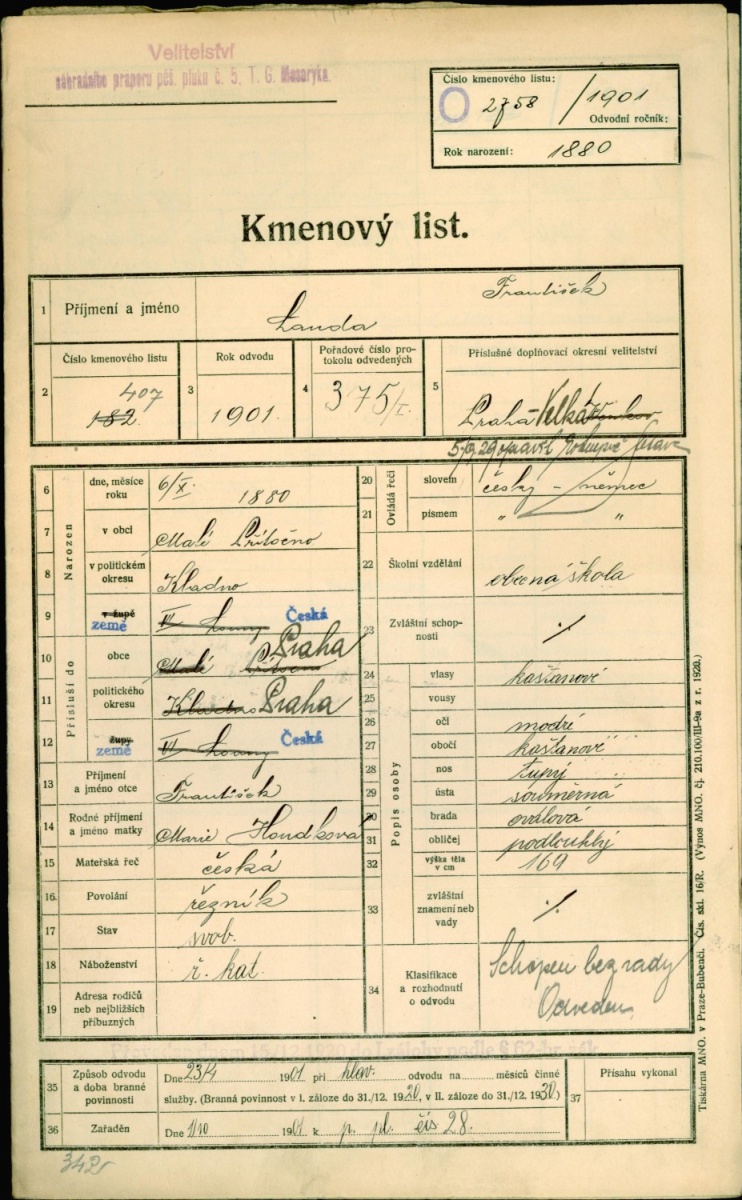 Velitelství
náhradního praporu pěš. pluku č. 5, T. G. Masaryka.
Číslo kmenového listu:
2758 /1901
Odvodní ročník:
Rok narození: 1880
Kmenový list.
1 Příjmení a jméno Landa František
2 Číslo kmenového listu 182 407
3 Rok odvodu 1901.
4 Pořadové číslo protokolu odvedených 375/I.
5 Příslušné doplňovací okresní velitelství Praha-Velká
Narozen
6 dne, měsíce roku 6/X. 1880
7 v obci Malé Přítočno
8 v politickém okresu Kladno
9 v župě země VI Louny Česká
Přísluší do
10 obce Malé Přítočno Praha
11 politického okresu Kladno Praha
12 župy země VI Louny Česká
13 Příjmení a jméno otce František
14 Rodné příjmení a jméno matky Marie
15 Mateřská řeč česká
16 Povolání řezník
17 Stav svob.
18 Náboženství ř. kat.
19 Adresa rodičů neb nejbližších příbuzných
Ovládá řeči
20 slovem česky – německ
21 písmem " "
22 Školní vzdělání obecná škola
23 Zvláštní schopnosti ./.
Popis osoby
24 vlasy kaštanové
25 vousy
26 oči modré
27 obočí kaštanové
28 nos tupý
29 ústa souměrná
30 brada oválová
31 obličej podlouhlý
32 výška těla v cm 169
33 zvláštní znamení neb vady ./.
34 Klasifikace a rozhodnutí o odvodu Schopen bez vady
Odveden
35 Způsob odvodu a doba branné povinnosti
Dne 23/4 1901 při hlav. odvodu na měsíců činné
služby. (Branná povinnost v I. záloze do 31./12. 1920, v II. záloze do 31./12. 1930.)
36 Zařaděn Dne 1/10 1901 k p. pl. čís 28.
37 Přísahu vykonal
Tiskárna MNO. v Praze-Bubenči. Čís. skl. 16/R. (Výnos MNO. čj. 210.100/III-9a z r. 1920.)